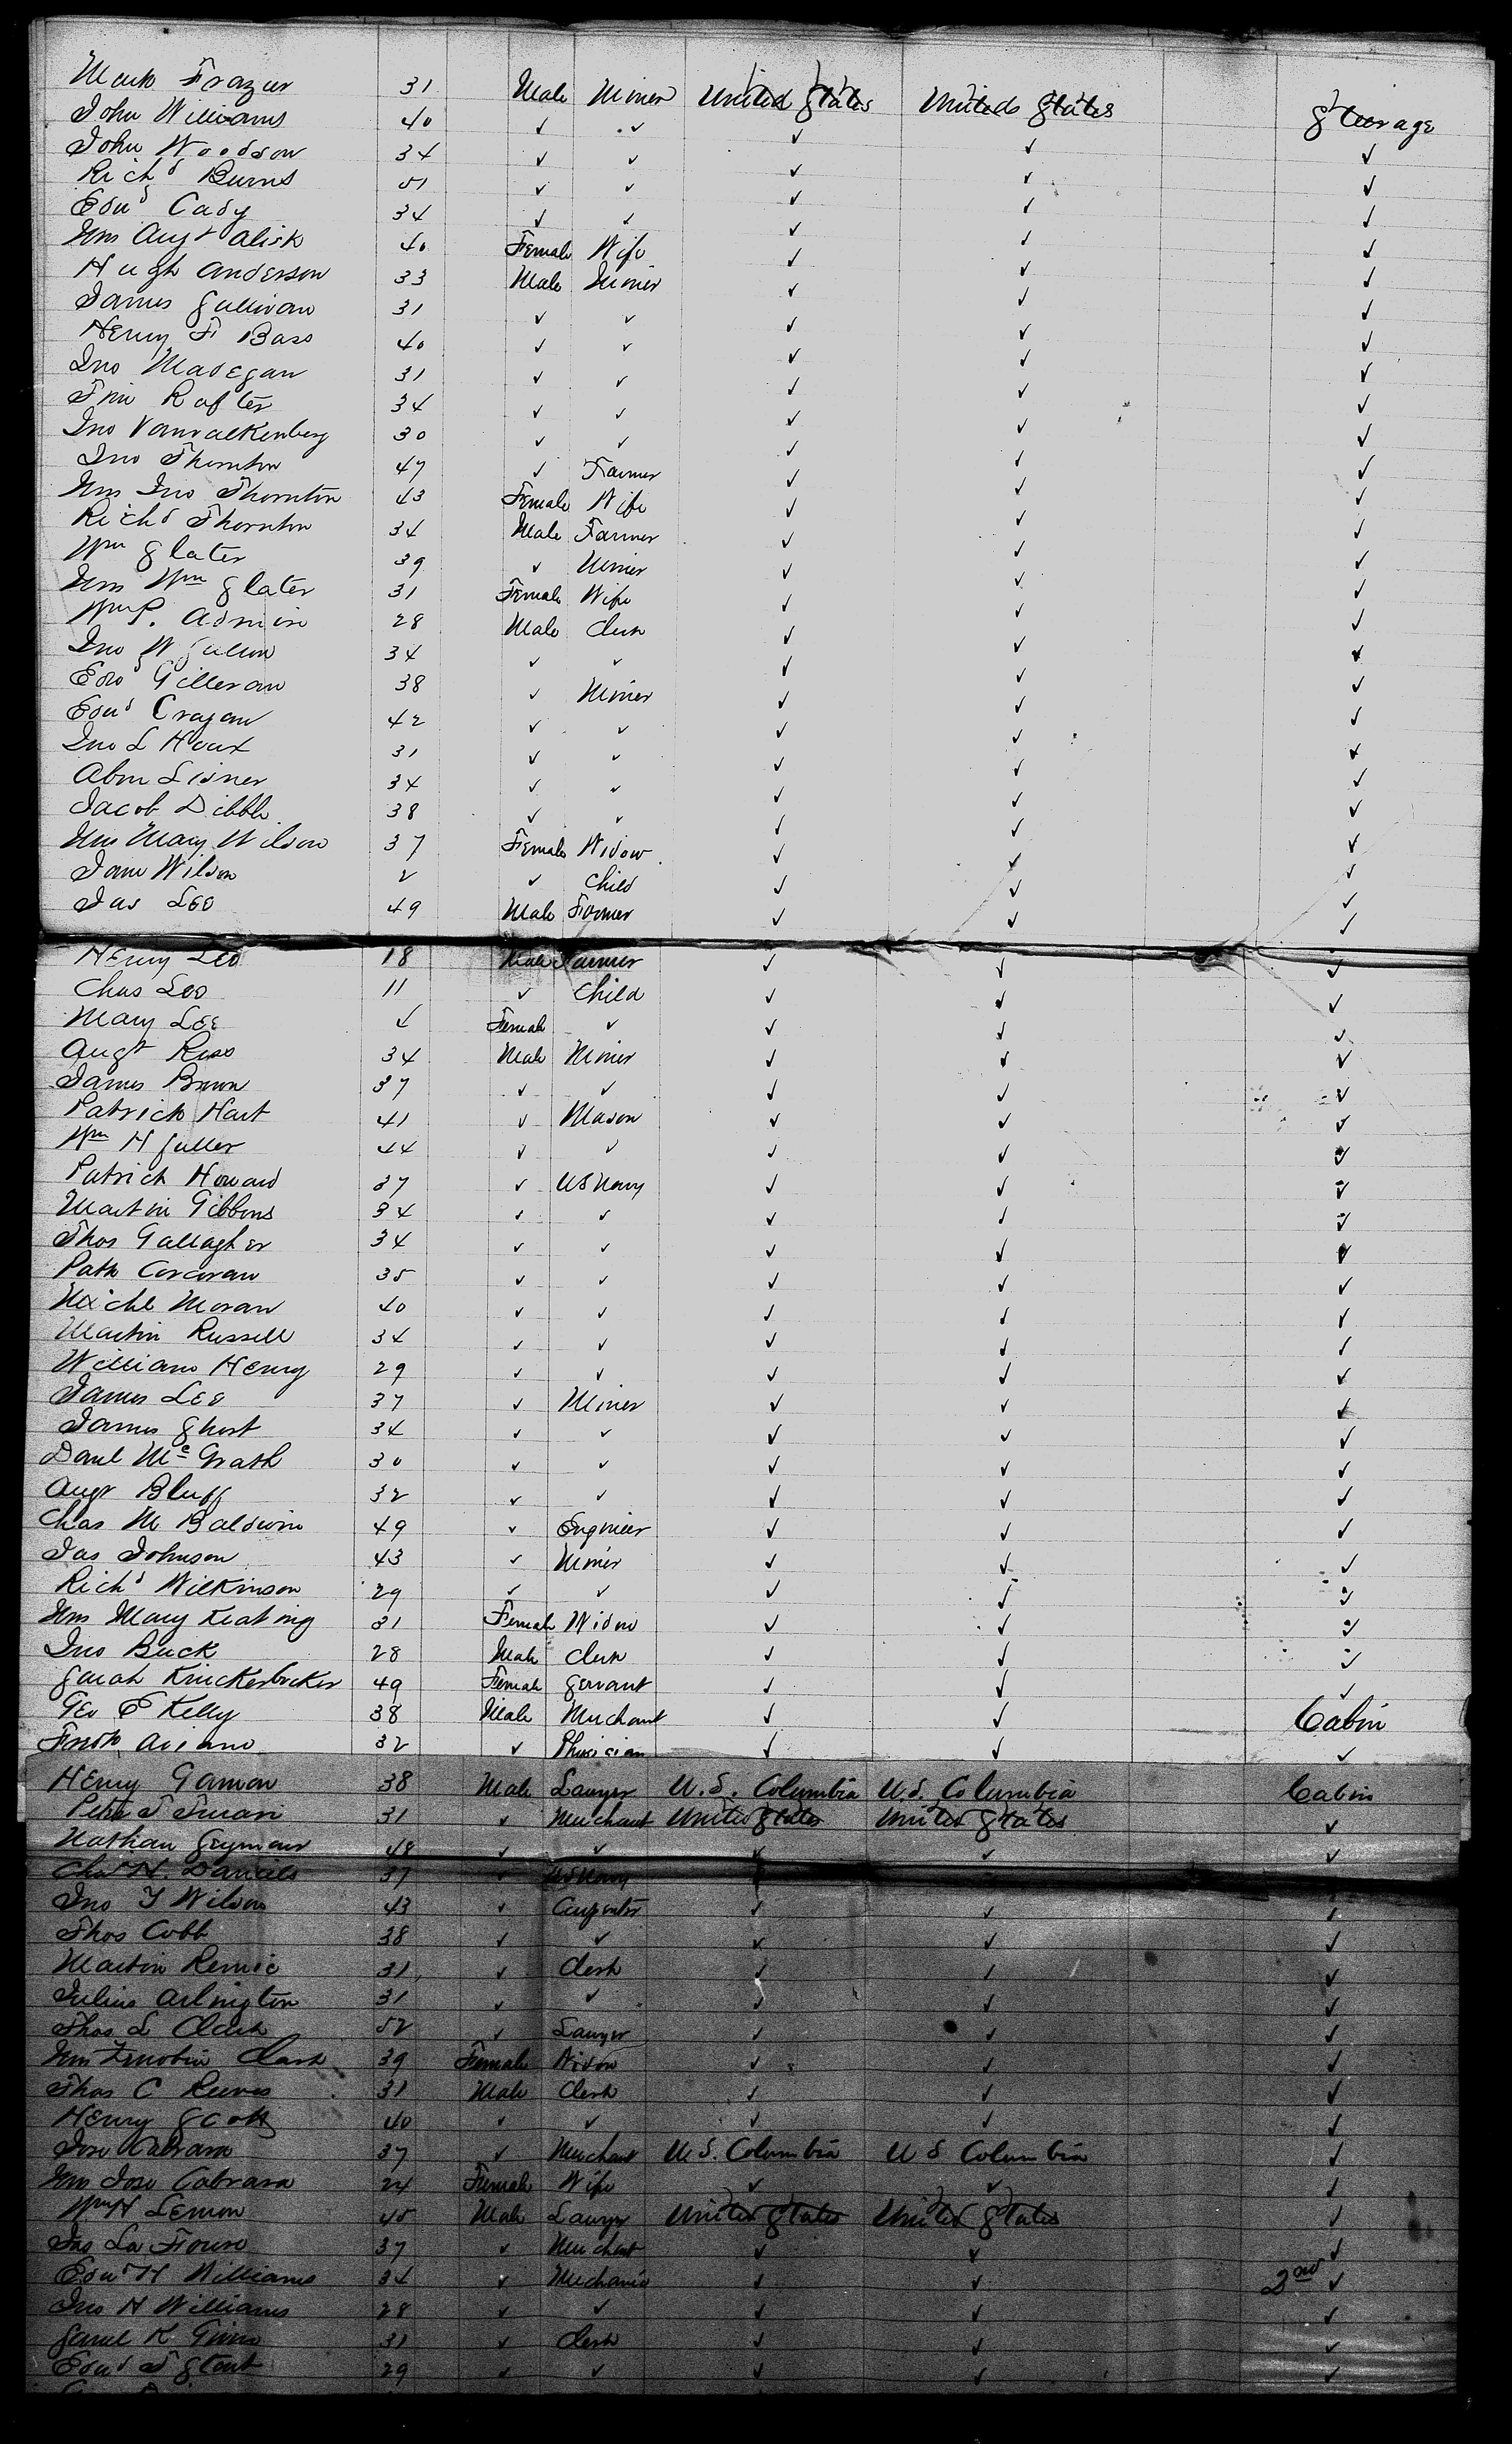 Mark Frazier 31 Male Miner United States United States Steerage
John Williams 40 ✓ ✓ ✓ ✓ ✓
John Woodson 34 ✓ ✓ ✓ ✓ ✓
Richd Burns 51 ✓ ✓ ✓ ✓ ✓
Edwd Cady 34 ✓ ✓ ✓ ✓ ✓
Mrs Augt Alisk 40 Female Wife ✓ ✓ ✓
Hugh Anderson 33 Male Miner ✓ ✓ ✓
James Sullivan 31 ✓ ✓ ✓ ✓ ✓
Henry F Bass 40 ✓ ✓ ✓ ✓ ✓
Jno Madegan 31 ✓ ✓ ✓ ✓ ✓
Tim Rafter 34 ✓ ✓ ✓ ✓ ✓
Jno Vanvalkenberg 30 ✓ ✓ ✓ ✓ ✓
Jno Thornton 47 ✓ Farmer ✓ ✓ ✓
Mrs Jno Thornton 43 Female Wife ✓ ✓ ✓
Richd Thornton 34 Male Farmer ✓ ✓ ✓
Wm Slater 39 ✓ Miner ✓ ✓ ✓
Mrs Wm Slater 31 Female Wife ✓ ✓ ✓
Wm P. 28 Male Clerk ✓ ✓ ✓
Jno W 34 ✓ ✓ ✓ ✓ ✓
Edwd Gilleran 38 ✓ Miner ✓ ✓ ✓
Edwd Cragan 42 ✓ ✓ ✓ ✓ ✓
Jno L Houx 31 ✓ ✓ ✓ ✓ ✓
Abm Lisner 34 ✓ ✓ ✓ ✓ ✓
Jacob Dibble 38 ✓ ✓ ✓ ✓ ✓
Mrs Mary Wilson 37 Female Widow ✓ ✓ ✓
Jane Wilson 2 ✓ Child ✓ ✓ ✓
Jas Lee 49 Male Farmer ✓ ✓ ✓
Henry Lee 18 Male Farmer ✓ ✓ ✓
Chas Lee 11 ✓ Child ✓ ✓ ✓
Mary Lee Female ✓ ✓ ✓ ✓
Augt 34 Male Miner ✓ ✓ ✓
James Brown 37 ✓ ✓ ✓ ✓ ✓
Patrick Hart 41 ✓ Mason ✓ ✓ ✓
Wm H Fuller 44 ✓ ✓ ✓ ✓ ✓
Patrick Howard 37 ✓ US Navy ✓ ✓ ✓
Martin Gibbons 34 ✓ ✓ ✓ ✓ ✓
Thos Gallagher 34 ✓ ✓ ✓ ✓ ✓
Patk Corcoran 35 ✓ ✓ ✓ ✓ ✓
Michl Moran 40 ✓ ✓ ✓ ✓ ✓
Martin Russell 34 ✓ ✓ ✓ ✓ ✓
William Henry 29 ✓ ✓ ✓ ✓ ✓
James Lee 37 ✓ Miner ✓ ✓ ✓
James Short 34 ✓ ✓ ✓ ✓ ✓
Danl McGrath 30 ✓ ✓ ✓ ✓ ✓
Augt Bluff 32 ✓ ✓ ✓ ✓ ✓
Chas M Baldwin 49 ✓ Engineer ✓ ✓ ✓
Jas Johnson 43 ✓ Miner ✓ ✓ ✓
Richd Wilkinson 29 ✓ ✓ ✓ ✓ ✓
Mrs Mary Keating 31 Female Widow ✓ ✓ ✓
Jno Buck 28 Male Clerk ✓ ✓ ✓
Sarah Knickerbocker 49 Female Servant ✓ ✓ ✓
Geo E Kelly 38 Male Merchant ✓ ✓ Cabin
Fredk 32 ✓ Physician ✓ ✓ ✓
Henry Gaman 38 Male Lawyer U.S. Columbia U.S. Columbia Cabin
Peter T 31 ✓ Merchant United States United States ✓
Nathan Seymour 48 ✓ ✓ ✓ ✓ ✓
Chas H. Daniels 37 ✓ US Navy
Jno Y Wilson 43 ✓ Carpenter ✓ ✓ ✓
Thos Cobb 38 ✓ ✓ ✓ ✓ ✓
Martin Remic 31 ✓ Clerk ✓ ✓ ✓
Julius Arlington 31 ✓ ✓ ✓ ✓ ✓
Thos L Clark 52 ✓ Lawyer ✓ ✓ ✓
Mrs Zenobia Clark 39 Female Widow ✓ ✓ ✓
Thos C Reeves 31 Male Clerk ✓ ✓ ✓
Henry Scott 40 ✓ ✓ ✓ ✓ ✓
Jose Cabrara 37 ✓ Merchant U.S. Columbia U S Columbia ✓
Mrs Jose Cabrara 24 Female Wife ✓ ✓ ✓
Wm H Lemon 45 Male Lawyer United States United States ✓
Jas La Fourse 37 ✓ Merchant ✓ ✓ ✓
Edwd H Williams 34 ✓ Mechanic ✓ ✓ 2nd ✓
Jno H Williams 28 ✓ ✓ ✓ ✓ ✓
Saml K 31 ✓ Clerk ✓ ✓ ✓
Edwd S Stout 29 ✓ ✓ ✓ ✓ ✓